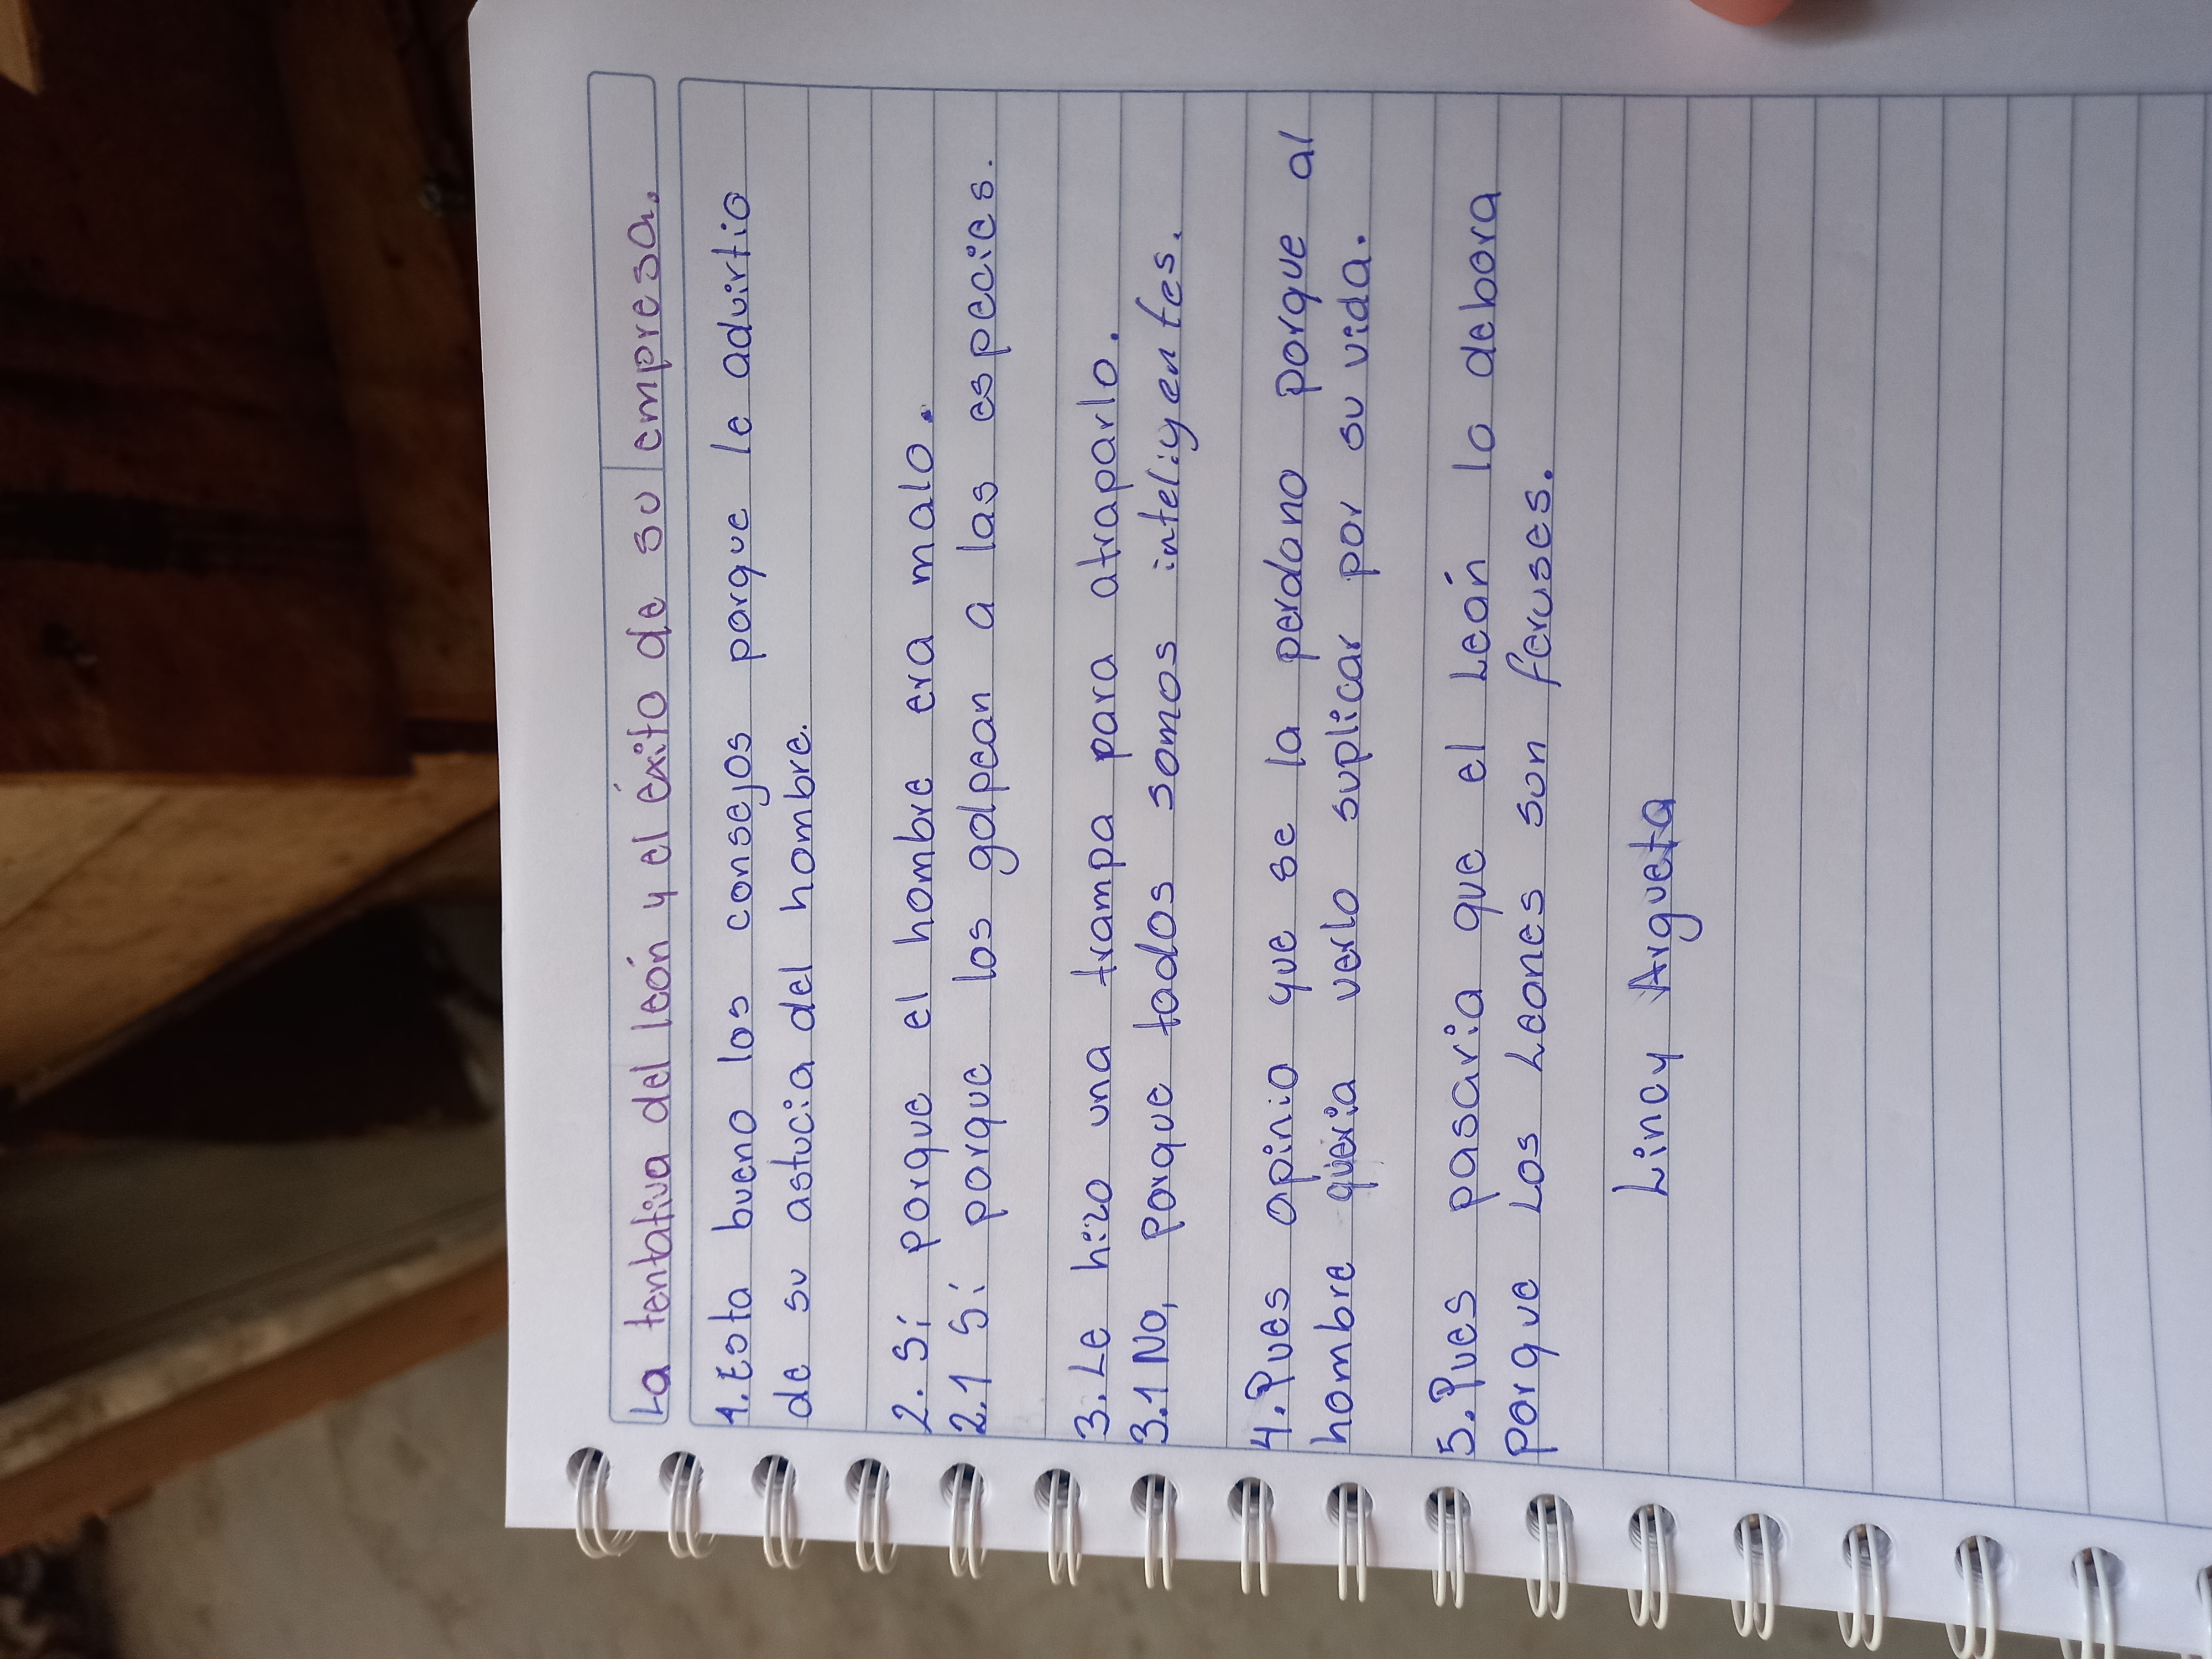 La tentativa del león y el éxito de su empresa.
1. Esta bueno los consejos porque le advirtio
de su astucia del hombre.
2. Sí porque el hombre era malo.
2.1 Sí porque los golpean a las especies.
3. Le hizo una trampa para atraparlo.
3.1 No, porque todos somos inteligentes.
4. Pues opinio que se la perdono porque al
hombre queria verlo suplicar por su vida.
5. Pues pasaria que el León lo debora
porque Los Leones son feruses.
Lincy Argueta